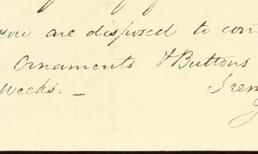 you are disposed to con
Ornaments & Buttons
Weeks. _ I rem